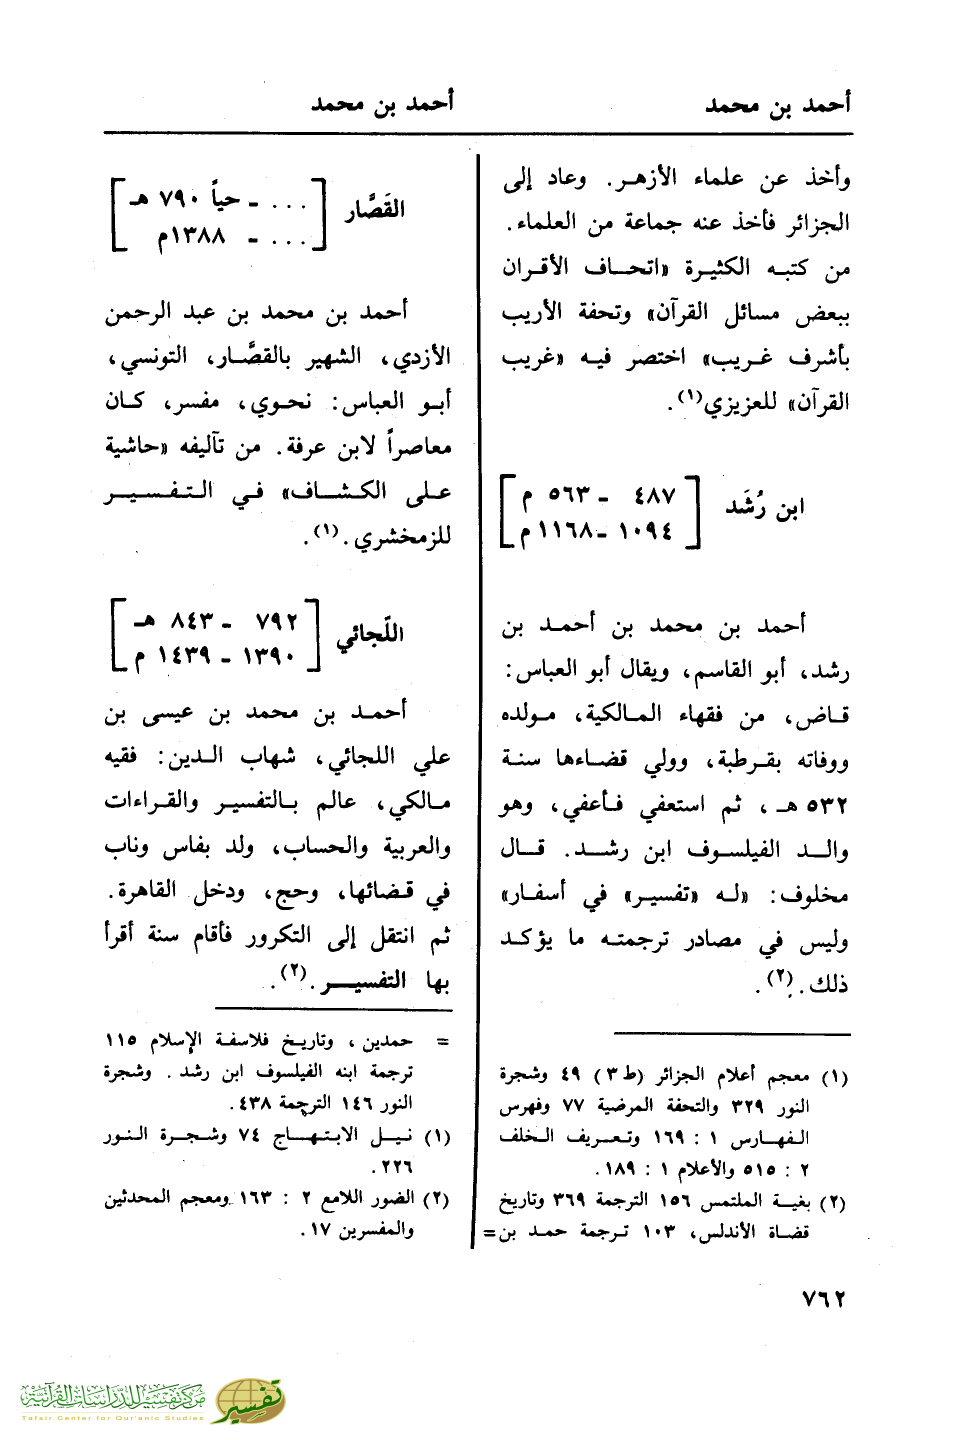 أحمد بن محمد
أحمد بن محمد
وأخذ عن علماء الأزهـر. وعاد إلى
الجزائر فأخذ عنه جماعة من العلماء.
من كتبـه الكثيـرة «اتحـاف الأقـران
ببعض مسائل القرآن» وتحفة الأريب
بأشرف غـريب» اختصر فيه «غريب
القرآن» للعزيزي(١).
ابن رُشَد
[٤٨٧ - ٥٦٣ م
١٠٩٤ - ١١٦٨ م]
أحمد بن محمد بن أحمـد بن
رشد، أبو القاسم، ويقال أبو العباس:
قـاض، من فقهاء المـالكية، مـولده
ووفاته بقـرطبة، وولي قضـاءها سنـة
٥٣٢ هـ، ثم استعفي فـأعفي، وهو
والـد الفيلسـوف ابن رشـد. قـال
مخلوف: «لـه «تفسيـر» في أسفـار»
وليس في مصادر ترجمتـه ما يؤكـد
ذلك. (٢).
(١) معجم أعلام الجزائر (ط ٣) ٤٩ وشجرة
النور ٣٢٩ والتحفة المرضية ٧٧ وفهرس
الفهارس ١ : ١٦٩ وتعـريف الخلف
٢ : ٥١٥ والأعلام ١ : ١٨٩.
(٢) بغيـة الملتمس ١٥٦ الترجمة ٣٦٩ وتاريخ
قضاة الأندلس، ١٠٣ تـرجمة حمـد بن=
القَصَّار
[. . . - حياً ٧٩٠ هـ
. . . - ١٣٨٨م]
أحمد بن محمد بن عبد الرحمن
الأزدي، الشهير بالقصَّـار، التونسي،
أبـو العباس: نحـوي، مفسر، كـان
معاصراً لابن عرفة. من تآليفه «حاشية
علـى الكشـاف» فـي التـفـسيـر
للزمخشري. (١).
اللَجائي
[٧٩٢ - ٨٤٣ هـ
١٣٩٠ - ١٤٣٩ م]
أحمـد بن محمد بن عيسى بن
علي اللجائي، شهاب الـدين: فقيه
مـالكي، عالم بـالتفسير والقـراءات
والعربية والحساب، ولد بفاس وناب
في قـضائها، وحج، ودخل القاهرة.
ثم انتقل إلى التكرور فأقام سنة أقرأ
بها التفسيـر. (٢).
= حمدين، وتاريـخ فلاسفـة الإسلام ١١٥
ترجمة ابنه الفيلسوف ابن رشد. وشجرة
النور ١٤٦ الترجمة ٤٣٨.
(١) نيـل الابتهـاج ٧٤ وشجـرة النـور
٢٢٦.
(٢) الضور اللامع ٢ : ١٦٣ ومعجم المحدثين
والمفسرين ١٧.
٧٦٢
مركز تفسير للدراسات القرآنية
Tafsir Center for Qur'anic Studies
تفسير